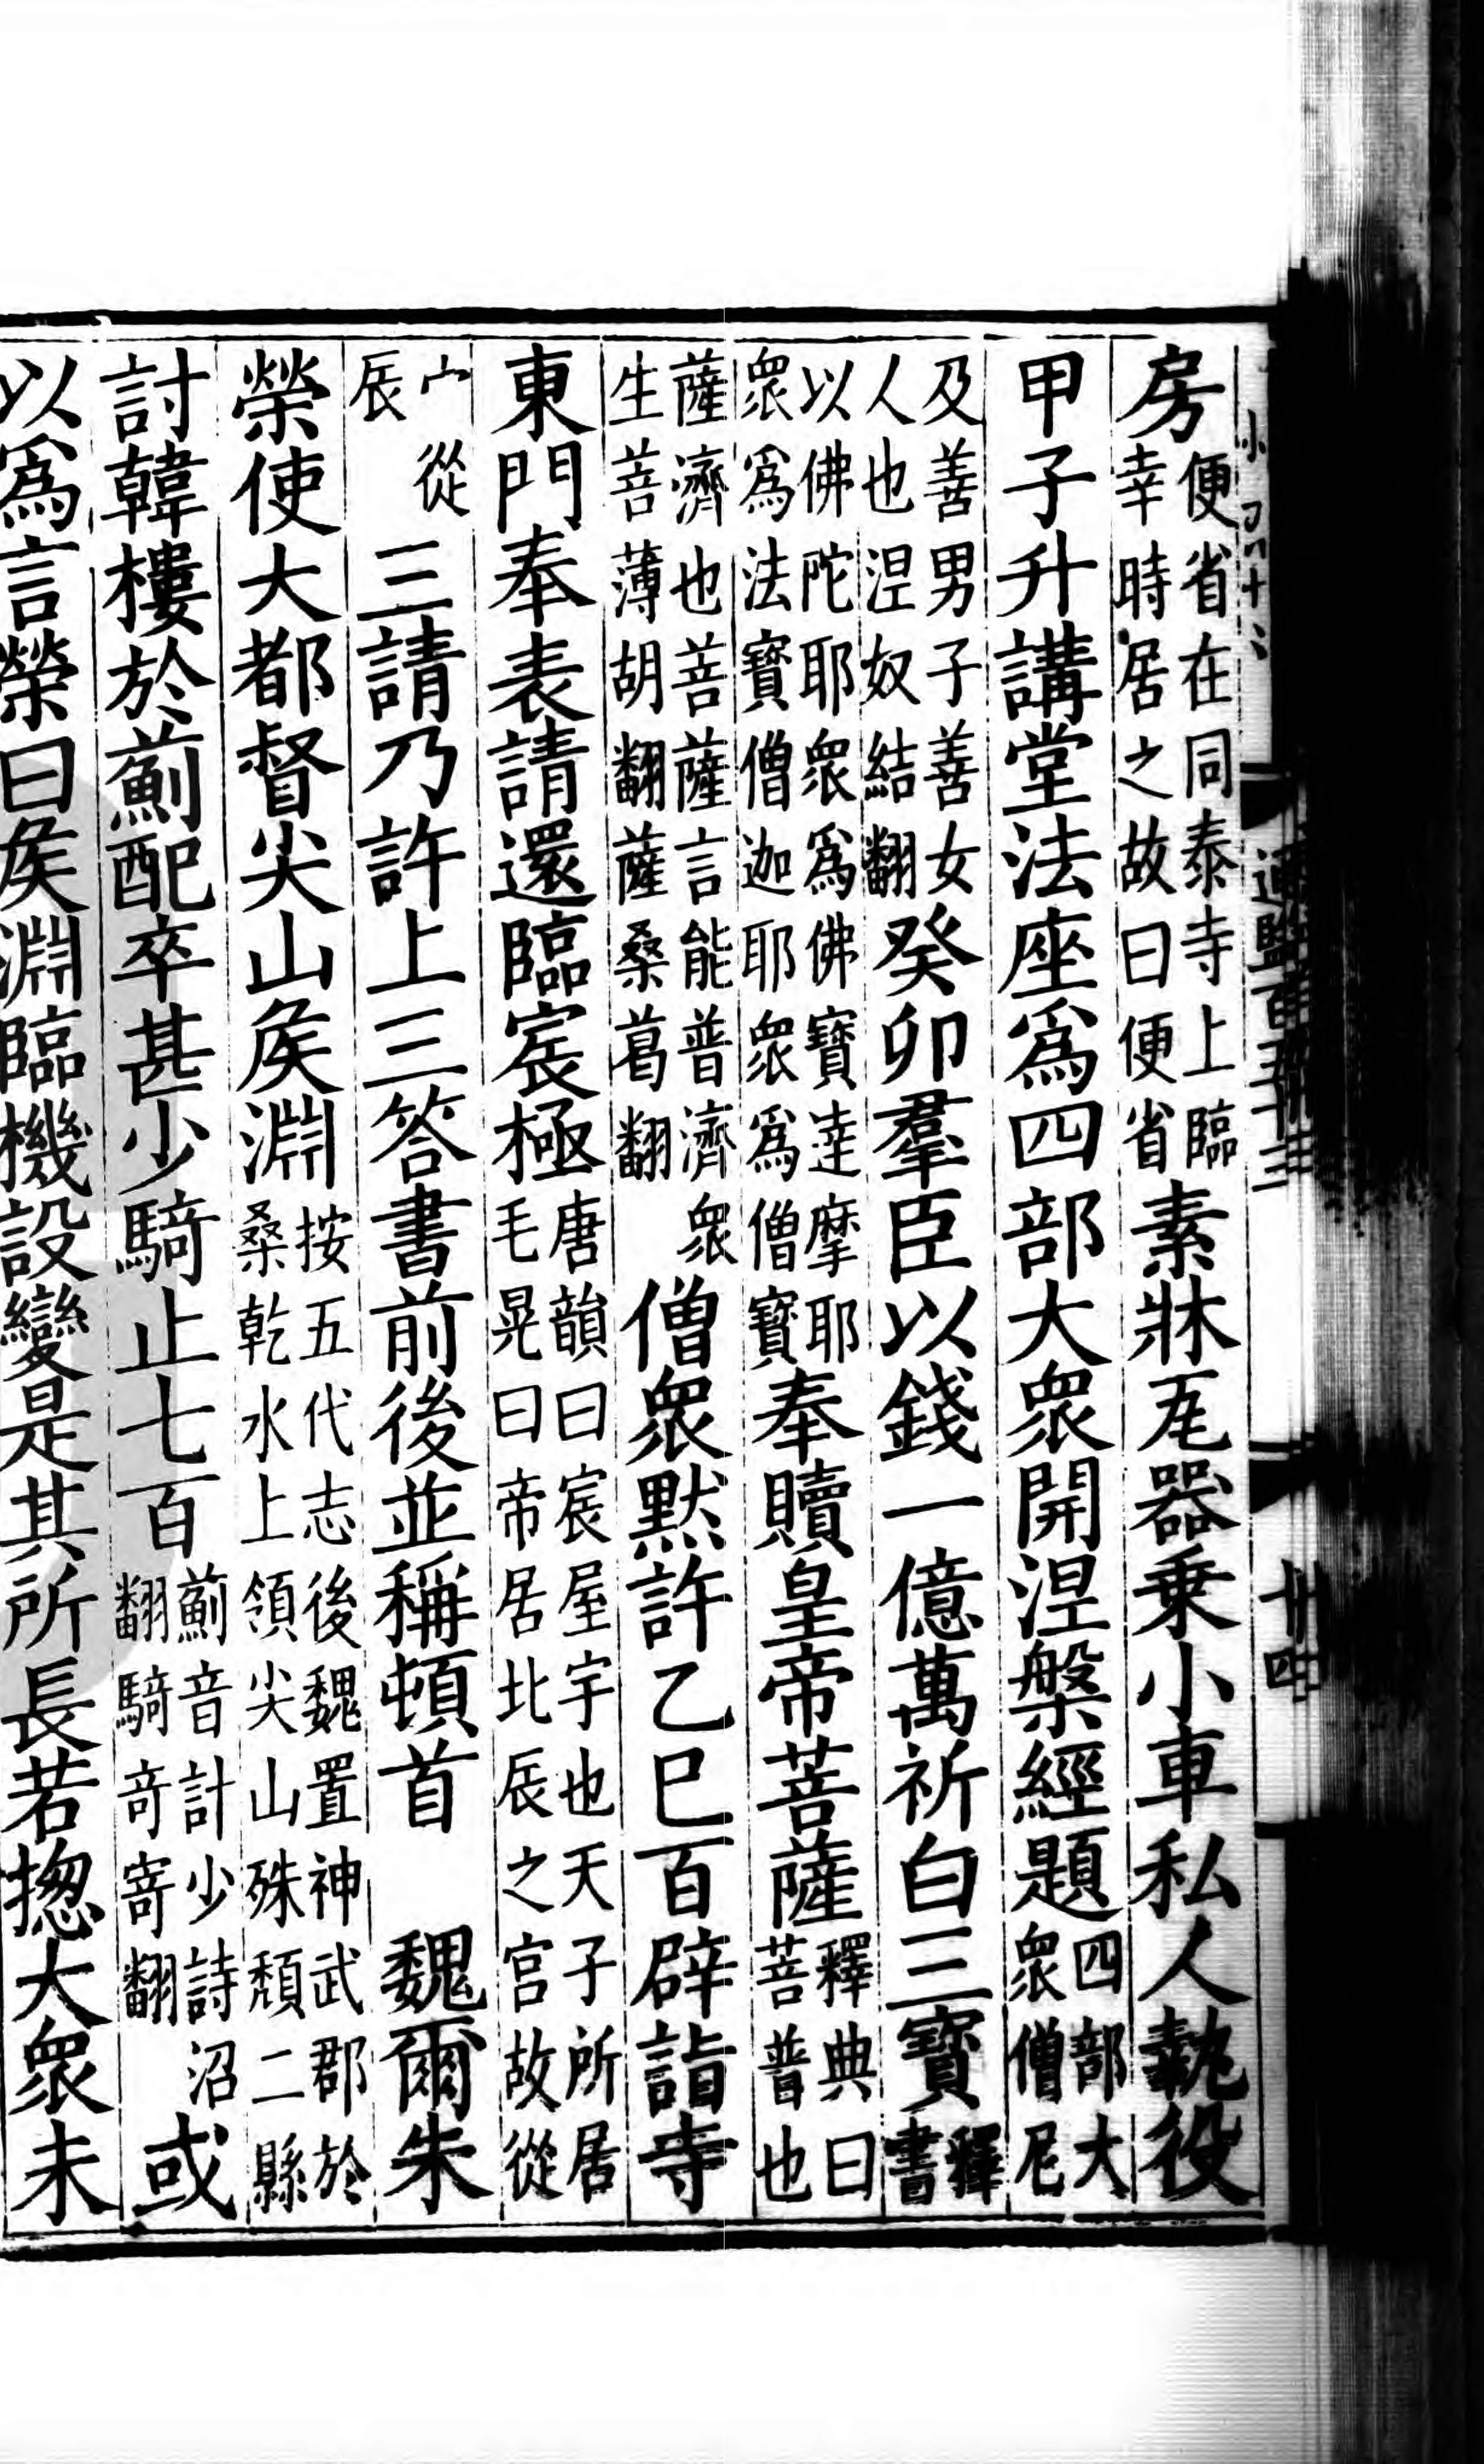 通鑑百五十三 廿四
房便省在同泰寺上臨幸時居之故曰便省素牀瓦器乗小車私人執役
甲子升講堂法座爲四部大衆開涅槃經題四部大衆僧尼
及善男子善女人也涅奴結翻癸卯羣臣以錢一億萬祈白三寶釋書
以佛陀耶衆爲佛寶達摩耶衆爲法寶僧迦耶衆爲僧寶奉贖皇帝菩薩釋典曰菩普也
薩濟也菩薩言能普濟衆生菩薄胡翻薩桑葛翻僧衆黙許乙巳百辟詣寺
東門奉表請還臨宸極唐韻曰宸屋宇也天子所居毛晃曰帝居北辰之宫故從
宀從辰三請乃許上三答書前後並稱頓首 魏爾朱
榮使大都督尖山矦淵按五代志後魏置神武郡於桑乾水上領尖山殊頹二縣
討韓樓於薊配卒甚少騎止七百薊音計少詩沼翻騎奇寄翻或
以爲言榮曰矦淵臨機設變是其所長若揔大衆未